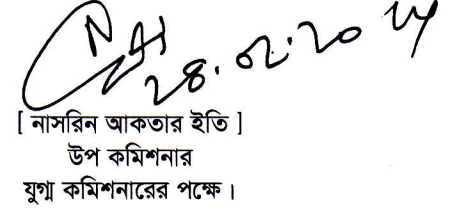 28.02.20
[ নাসরিন আকতার ইতি ]
উপ কমিশনার
যুগ্ম কমিশনারের পক্ষে।